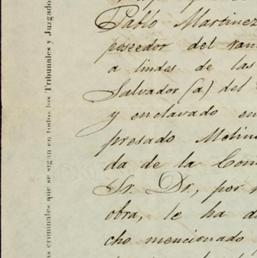 Pablo Martinez
poseedor del ran
a lindes de las
Salvador (a) del
y enclavado en
presado Molin
da de la Con
Sr. Dr., por
obra, le ha d
cho mencionado
as criminales que se sigan en todos los Tribunales y Juzgados